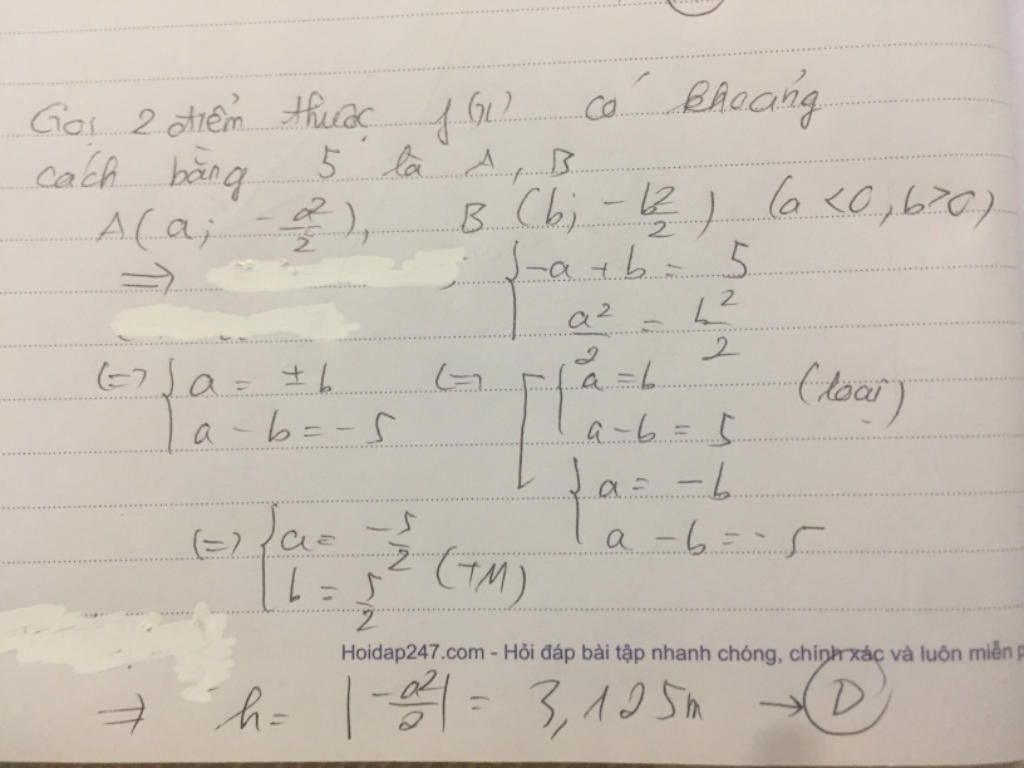 Gọi 2 điểm thuộc f(x) có khoảng
cách bằng 5 là A, B
A(a; -a²/2), B(b; -b²/2) (a <0, b>0)
=> { -a + b = 5
a²/2 = b²/2
(=) { a = ±b (=) [ { a = b (loại)
a - b = -5 a - b = 5
{ a = -b
a - b = -5
(=) { a = -5/2
b = 5/2 (TM)
Hoidap247.com - Hỏi đáp bài tập nhanh chóng, chính xác và luôn miễn p
=> h = |-a²/2| = 3,125m → D